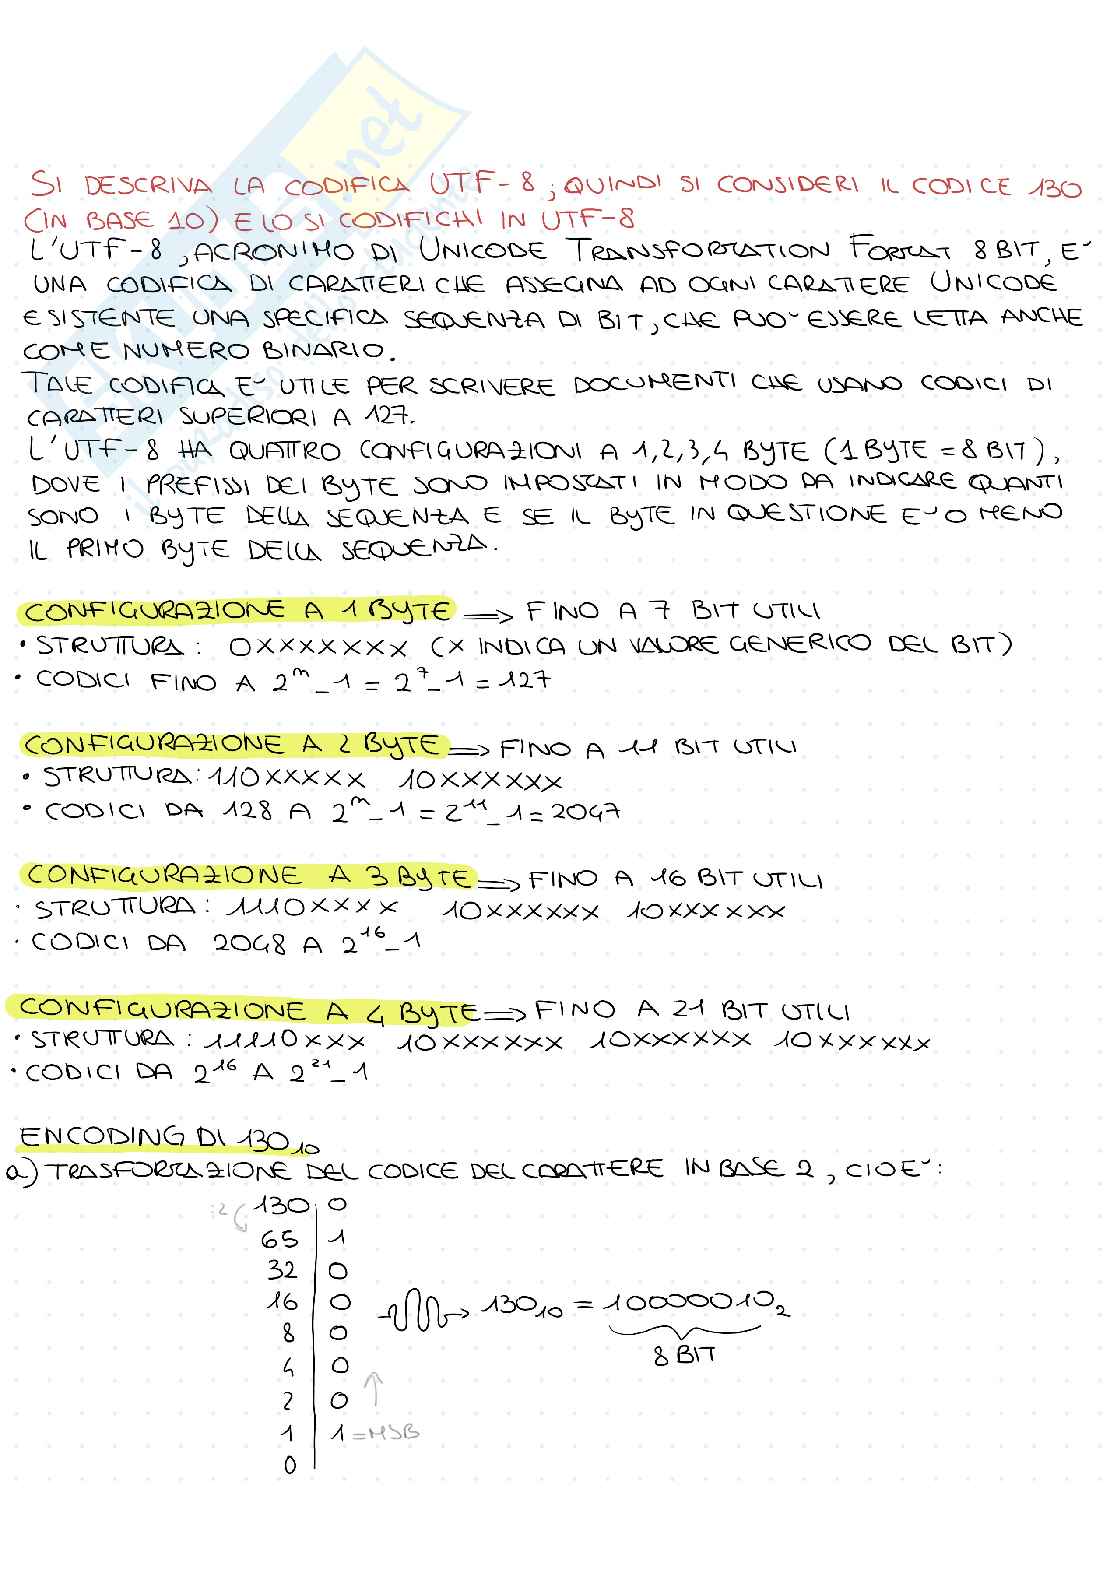 SI DESCRIVA LA CODIFICA UTF-8, QUINDI SI CONSIDERI IL CODICE 130
(IN BASE 10) E LO SI CODIFICHI IN UTF-8
L'UTF-8, ACRONIMO DI UNICODE TRANSFORMATION FORMAT 8 BIT, E`
UNA CODIFICA DI CARATTERI CHE ASSEGNA AD OGNI CARATTERE UNICODE
ESISTENTE UNA SPECIFICA SEQUENZA DI BIT, CHE PUO` ESSERE LETTA ANCHE
COME NUMERO BINARIO.
TALE CODIFICA E` UTILE PER SCRIVERE DOCUMENTI CHE USANO CODICI DI
CARATTERI SUPERIORI A 127.
L'UTF-8 HA QUATTRO CONFIGURAZIONI A 1,2,3,4 BYTE (1 BYTE = 8 BIT),
DOVE I PREFISSI DEI BYTE SONO IMPOSTATI IN MODO DA INDICARE QUANTI
SONO I BYTE DELLA SEQUENZA E SE IL BYTE IN QUESTIONE E` O MENO
IL PRIMO BYTE DELLA SEQUENZA.
CONFIGURAZIONE A 1 BYTE => FINO A 7 BIT UTILI
• STRUTTURA: 0XXXXXXX (X INDICA UN VALORE GENERICO DEL BIT)
• CODICI FINO A 2^m-1 = 2^7-1 = 127
CONFIGURAZIONE A 2 BYTE => FINO A 11 BIT UTILI
• STRUTTURA: 110XXXXX 10XXXXXX
• CODICI DA 128 A 2^m-1 = 2^11-1 = 2047
CONFIGURAZIONE A 3 BYTE => FINO A 16 BIT UTILI
• STRUTTURA: 1110XXXX 10XXXXXX 10XXXXXX
• CODICI DA 2048 A 2^16-1
CONFIGURAZIONE A 4 BYTE => FINO A 21 BIT UTILI
• STRUTTURA: 11110XXX 10XXXXXX 10XXXXXX 10XXXXXX
• CODICI DA 2^16 A 2^21-1
ENCODING DI 130₁₀
a) TRASFORMAZIONE DEL CODICE DEL CARATTERE IN BASE 2, CIOE`:
:2 130 | 0
65 | 1
32 | 0
16 | 0 → 130₁₀ = 10000010₂
8 | 0
8 BIT
4 | 0
2 | 0
1 | 1 = MSB
0
.net